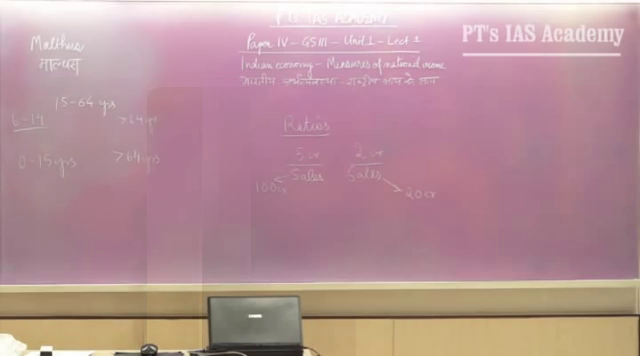 PT's IAS ACADEMY
PT's IAS Academy
Paper IV - GS III - Unit 1 - Lect 1
Indian economy - Measures of national income
भारतीय अर्थव्यवस्था - राष्ट्रीय आय के माप
Malthus
माल्थस
15-64 yrs
>64 yrs
0-15 yrs
>64 yrs
Ratios
5 cr
2 cr
Sales
Sales
100 cr
20 cr